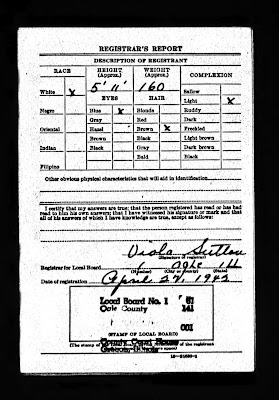 REGISTRAR'S REPORT
DESCRIPTION OF REGISTRANT
RACE HEIGHT (Approx.) WEIGHT (Approx.) COMPLEXION
5' 11" 160
White X Sallow
EYES HAIR Light X
Negro Blue X Blonde Ruddy
Gray Red Dark
Oriental Hazel Brown X Freckled
Brown Black Light brown
Indian Black Gray Dark brown
Bald Black
Filipino
Other obvious physical characteristics that will aid in identification
I certify that my answers are true; that the person registered has read or has had
read to him his own answers; that I have witnessed his signature or mark and that
all of his answers of which I have knowledge are true, except as follows:
Viola Sutton
(Signature of registrar)
Registrar for Local Board Ogle Ill
(Number) (City or county) (State)
Date of registration April 27, 1942
Local Board No. 1 81
County 141
001
(STAMP OF LOCAL BOARD)
County Court House
(The stamp of of the registrant